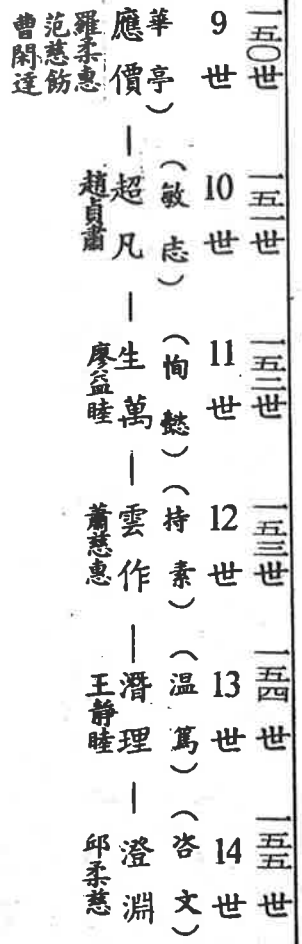 一五〇世
9世
華亭）
應價
羅柔惠
范慈飭
曹閑達
一五一世
10世
（敏志）
超凡
趙貞肅
一五二世
11世
（恂懿）
生萬
廖益睦
一五三世
12世
（持素）
雲作
蕭慈惠
一五四世
13世
（温篤）
潛理
王靜睦
一五五世
14世
（咨文）
澄淵
邱柔慈